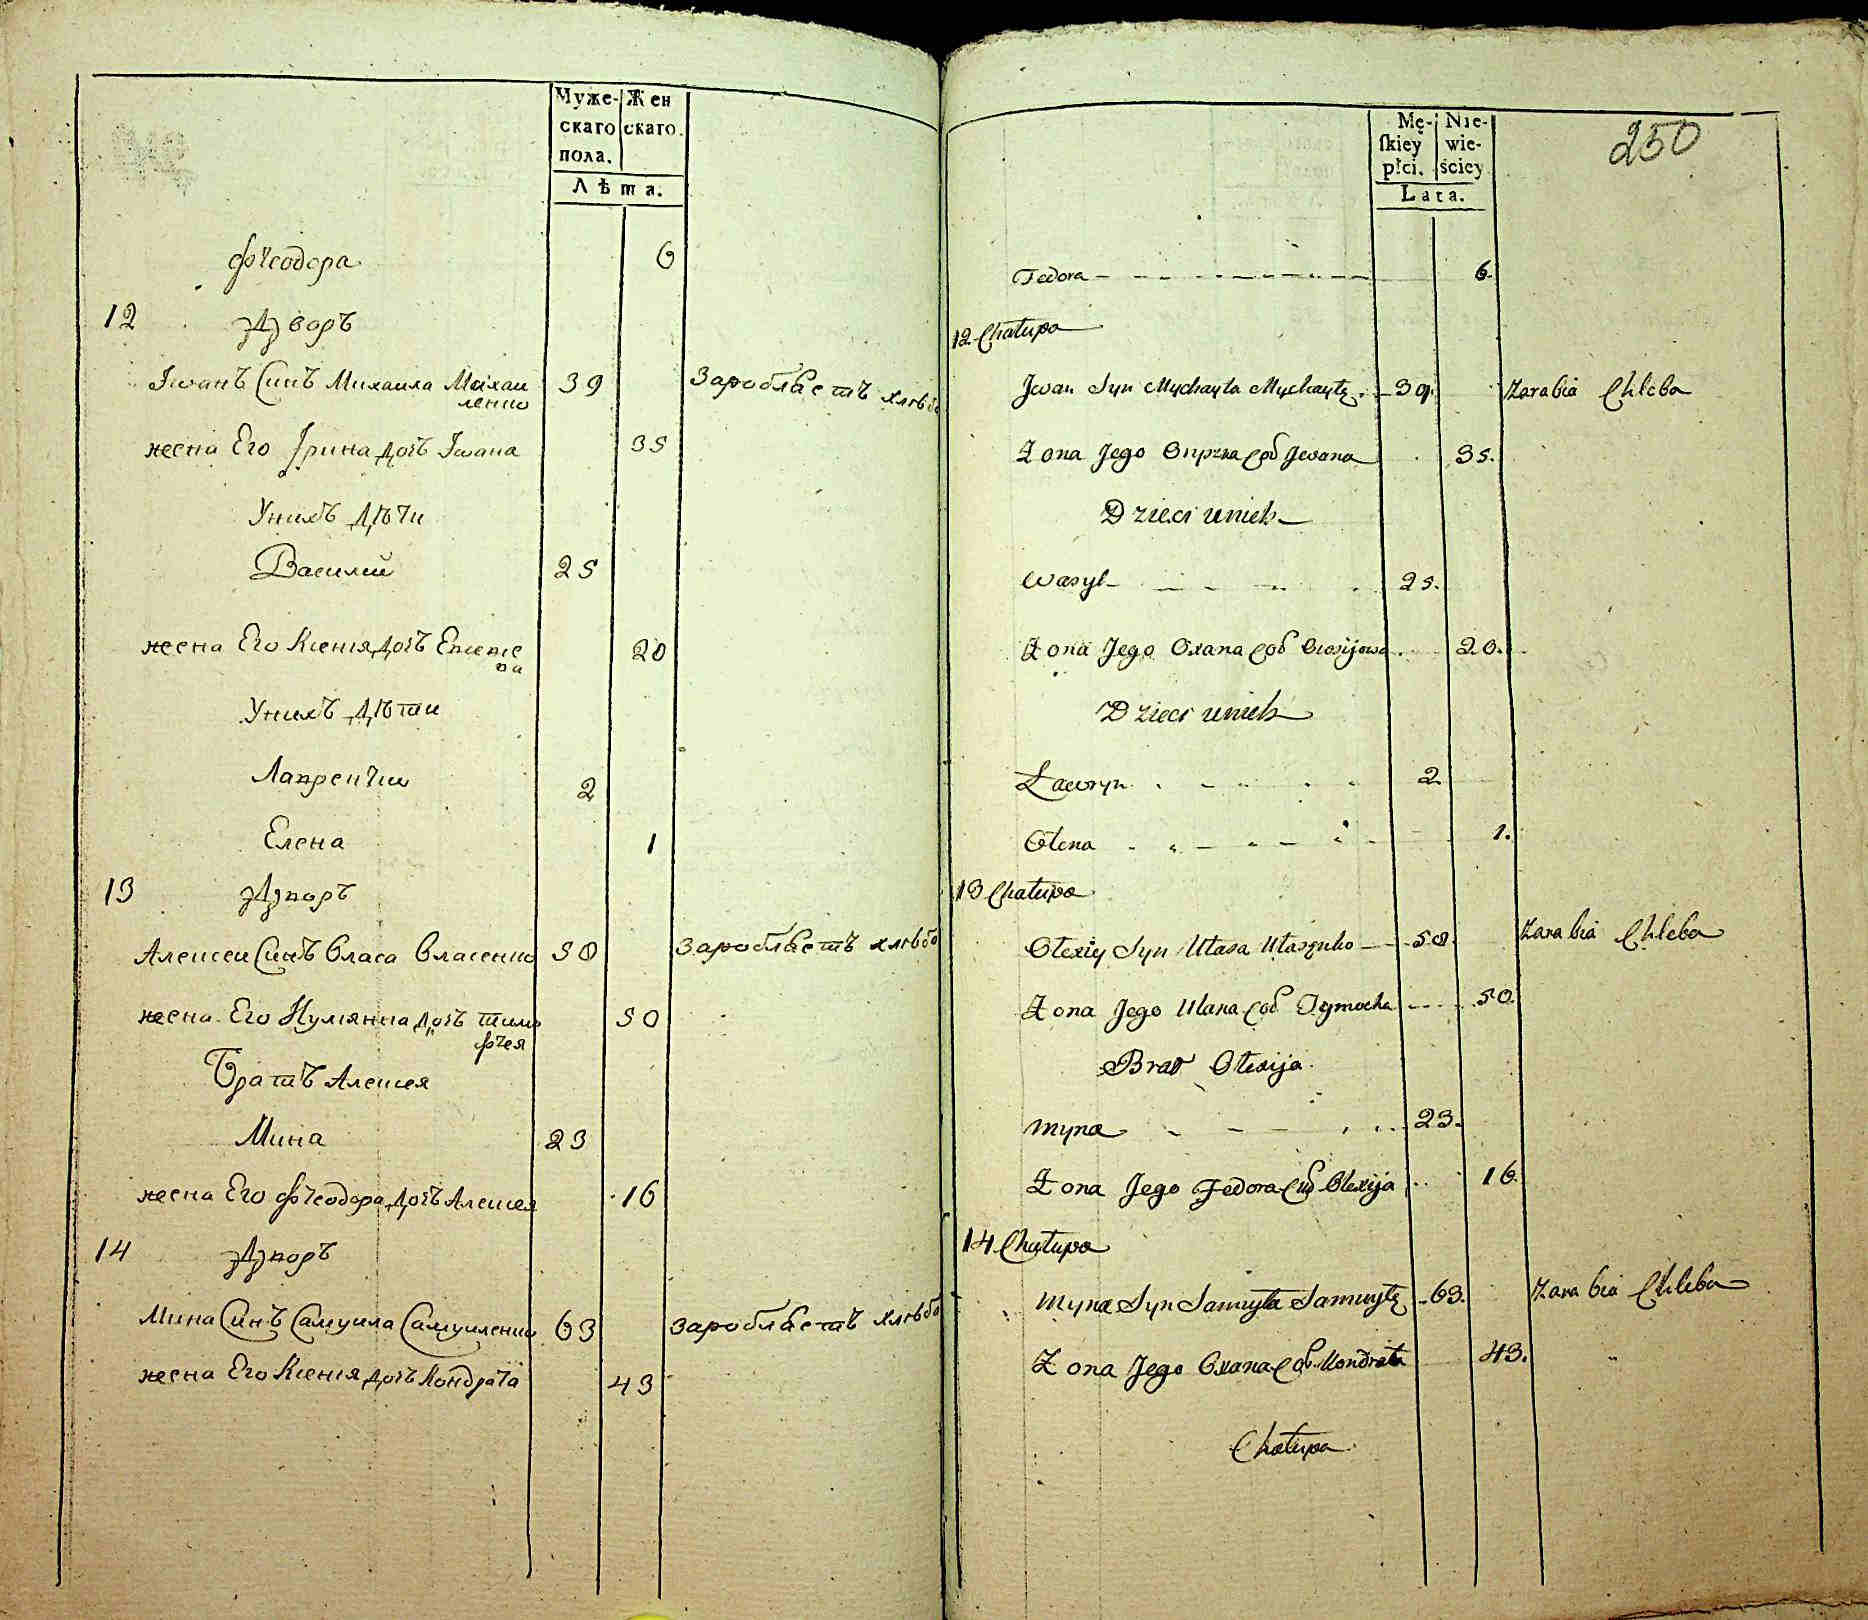 Муже- Жен
скаго скаго.
пола.
Лѣта.
Фѣеодора 6
12 Дворъ
Іванъ Синъ Михаила Михаи 39 Заробляетъ хлѣбъ
ленко
жена Его Ірина дочъ Івана 35
Унихъ дѣти
Василий 25
жена Его Ксенія дочъ 20
Унихъ дѣти
Лавренти 2
Елена 1
13 Дворъ
Алексеи Синъ Власа Власенко 50 Заробляетъ хлѣбъ
жена Его Иулианна дочъ тимо 50
фѣея
Братъ Алексея
Мина 23
жена Его Фѣеодора дочъ Алексея 16
14 Дворъ
Мина Синъ Самуила Самуиленко 63 Заробляетъ хлѣбъ
жена Его Ксенія дочъ Кондрата 43
250
Mę- Nie-
ſkiey wie-
płci. ściey
Lata.
Fedora 6.
12 Chałupa
Jwan Syn Mychayła 39. Zarabia Chleba
Żona Jego Cob Jwana 35.
Dzieci unich
Wasyl 25.
Żona Jego Oxana Cob 20.
Dzieci unich
Ławryn 2
Ołena 1.
13 Chałupa
Ołexiy Syn Ułasa Ułasenko 50. Zarabia Chleba
Żona Jego Ulana Cob Tymocha 50.
Brat Ołexija
Myna 23.
Żona Jego Fedora Cob Olexija 16.
14 Chałupa
Myna Syn Samuyła 63. Zarabia Chleba
Żona Jego Oxana Cob Kondrata 43.
Chałupa